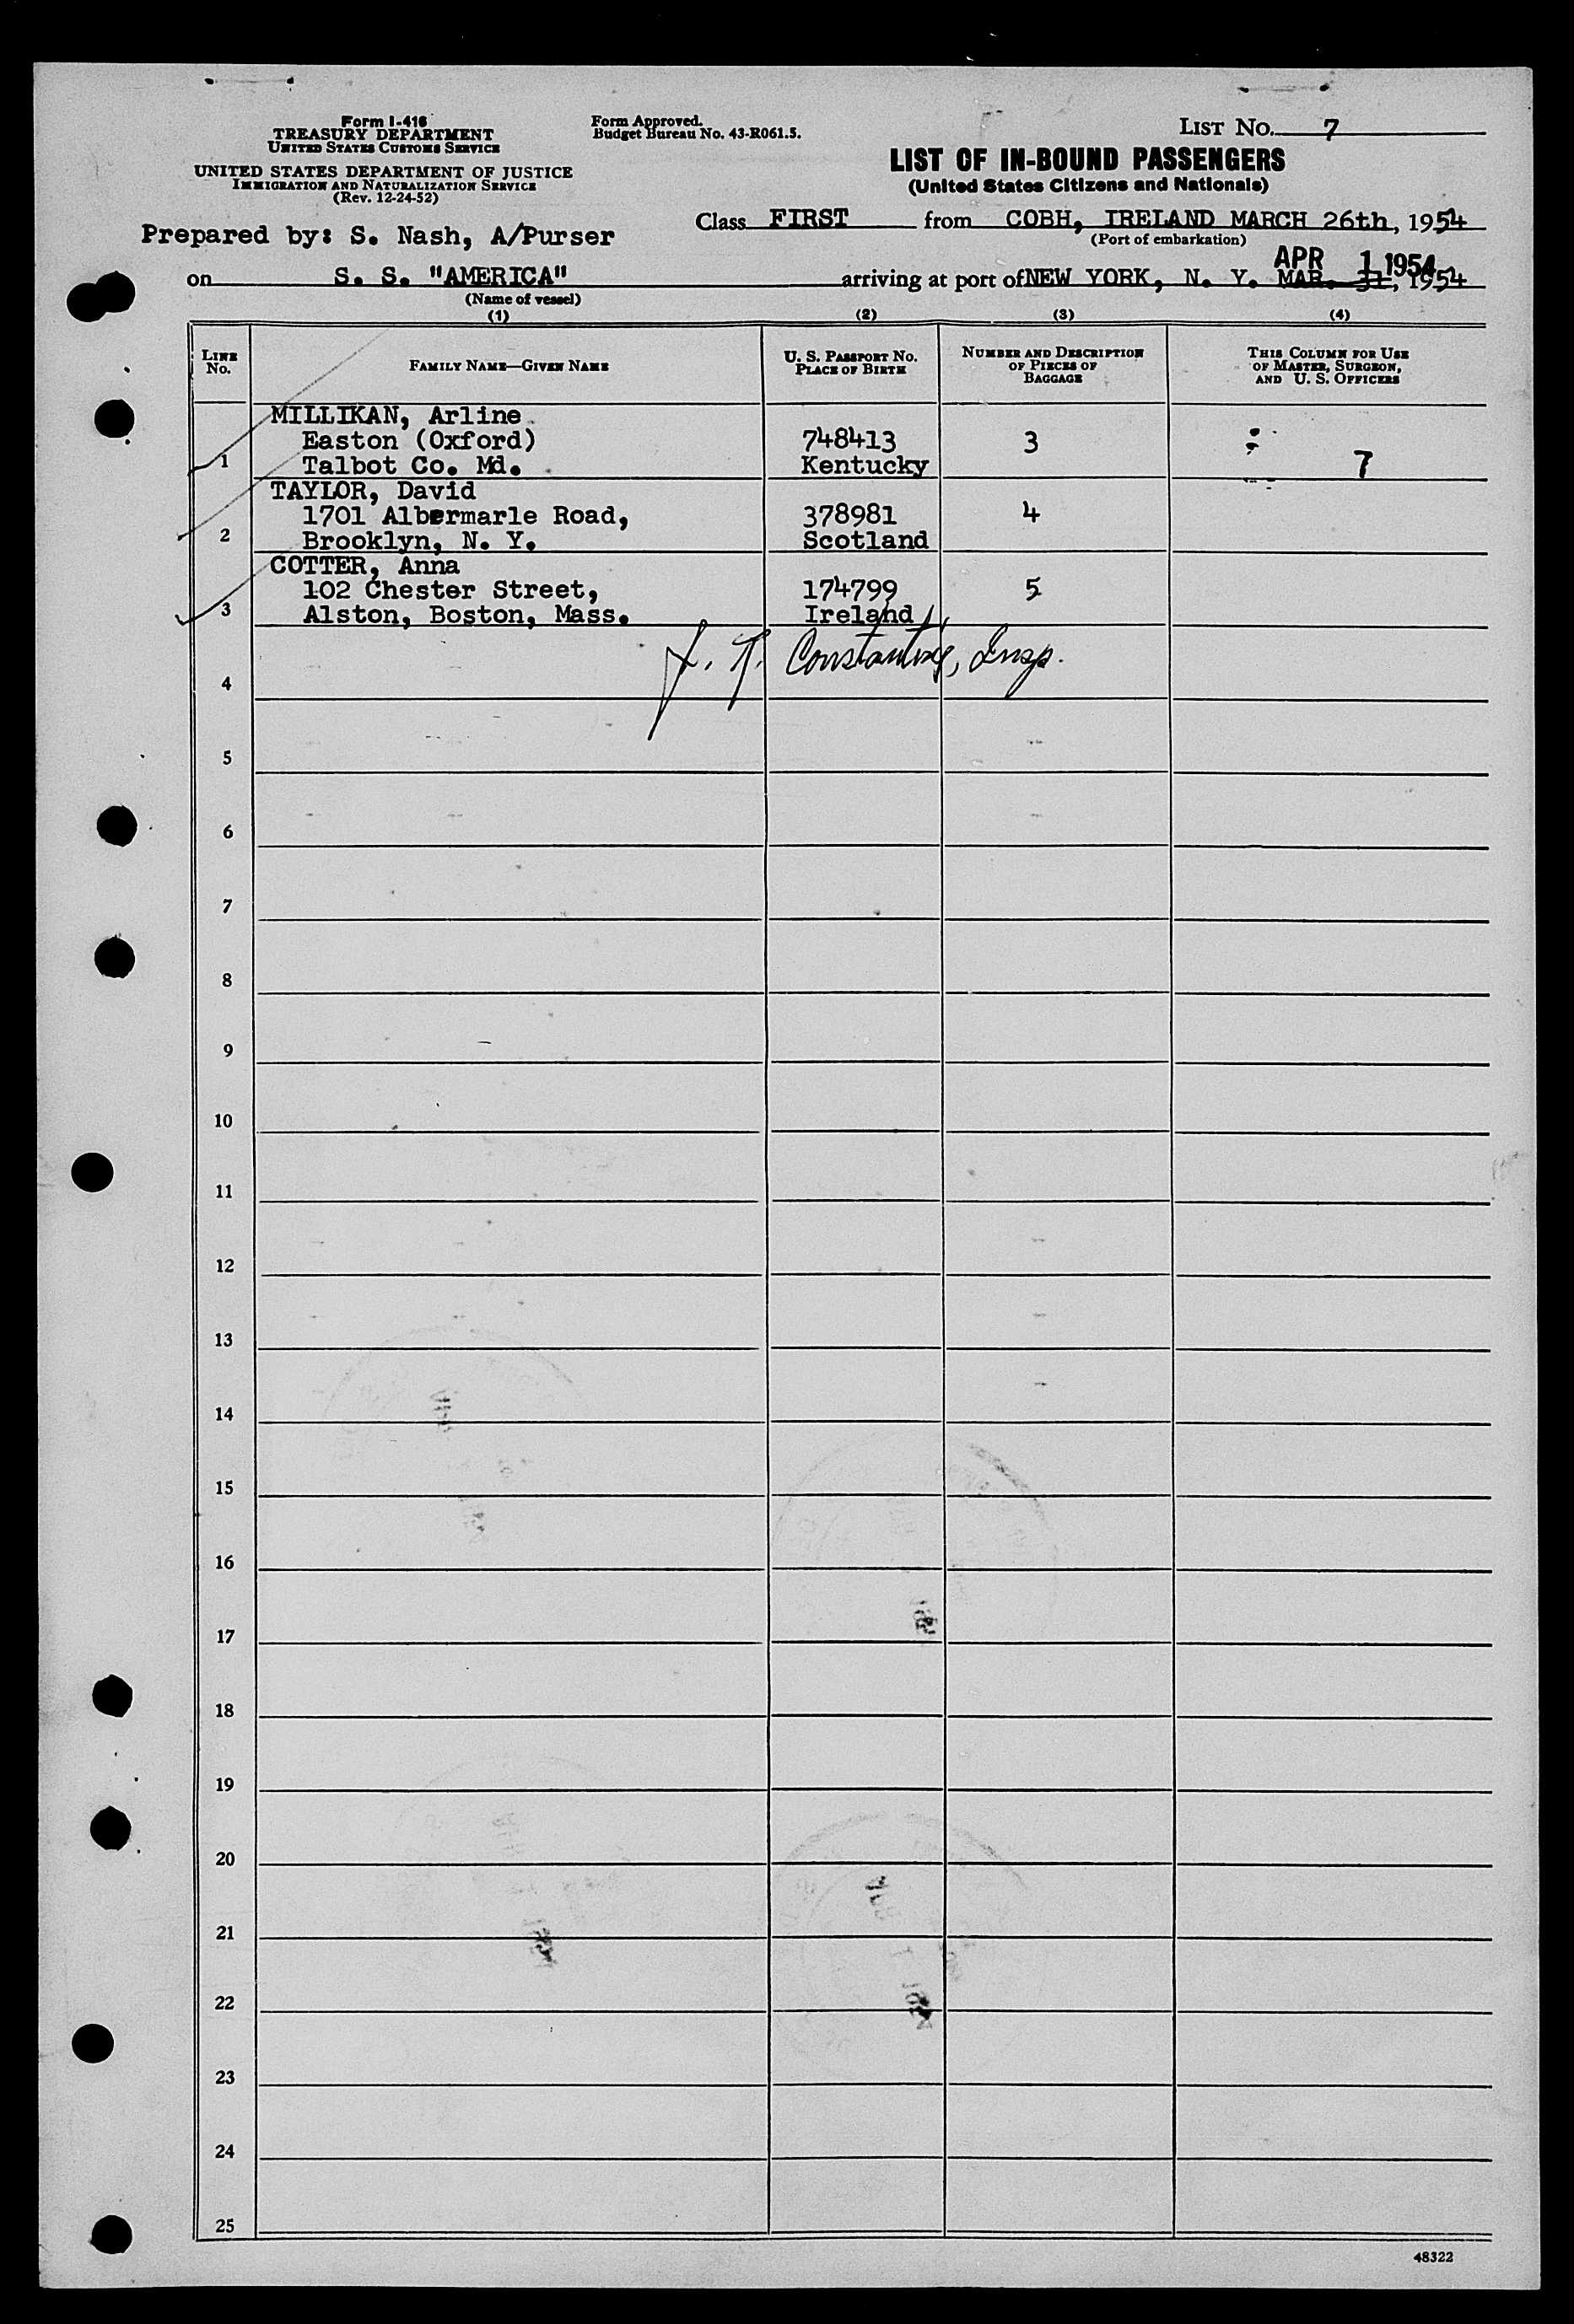 Form I-416
TREASURY DEPARTMENT
UNITED STATES CUSTOMS SERVICE
UNITED STATES DEPARTMENT OF JUSTICE
IMMIGRATION AND NATURALIZATION SERVICE
(Rev. 12-24-52)
Form Approved.
Budget Bureau No. 43-R061.5.
LIST No. 7
LIST OF IN-BOUND PASSENGERS
(United States Citizens and Nationals)
Prepared by: S. Nash, A/Purser
Class FIRST from COBH, IRELAND MARCH 26th, 1954
(Port of embarkation)
APR 1 1954
on S. S. "AMERICA" arriving at port of NEW YORK, N. Y. MAR. 31, 1954
(Name of vessel)
(1) (2) (3) (4)
LINE No. FAMILY NAME—GIVEN NAME U. S. PASSPORT No. PLACE OF BIRTH NUMBER AND DESCRIPTION OF PIECES OF BAGGAGE THIS COLUMN FOR USE OF MASTER, SURGEON, AND U. S. OFFICERS
MILLIKAN, Arline
Easton (Oxford) 748413 3
1 Talbot Co. Md. Kentucky 7
TAYLOR, David
1701 Albermarle Road, 378981 4
2 Brooklyn, N. Y. Scotland
COTTER, Anna
102 Chester Street, 174799 5
3 Alston, Boston, Mass. Ireland
Constantine, Insp.
4
5
6
7
8
9
10
11
12
13
14
15
16
17
18
19
20
21
22
23
24
25
48322